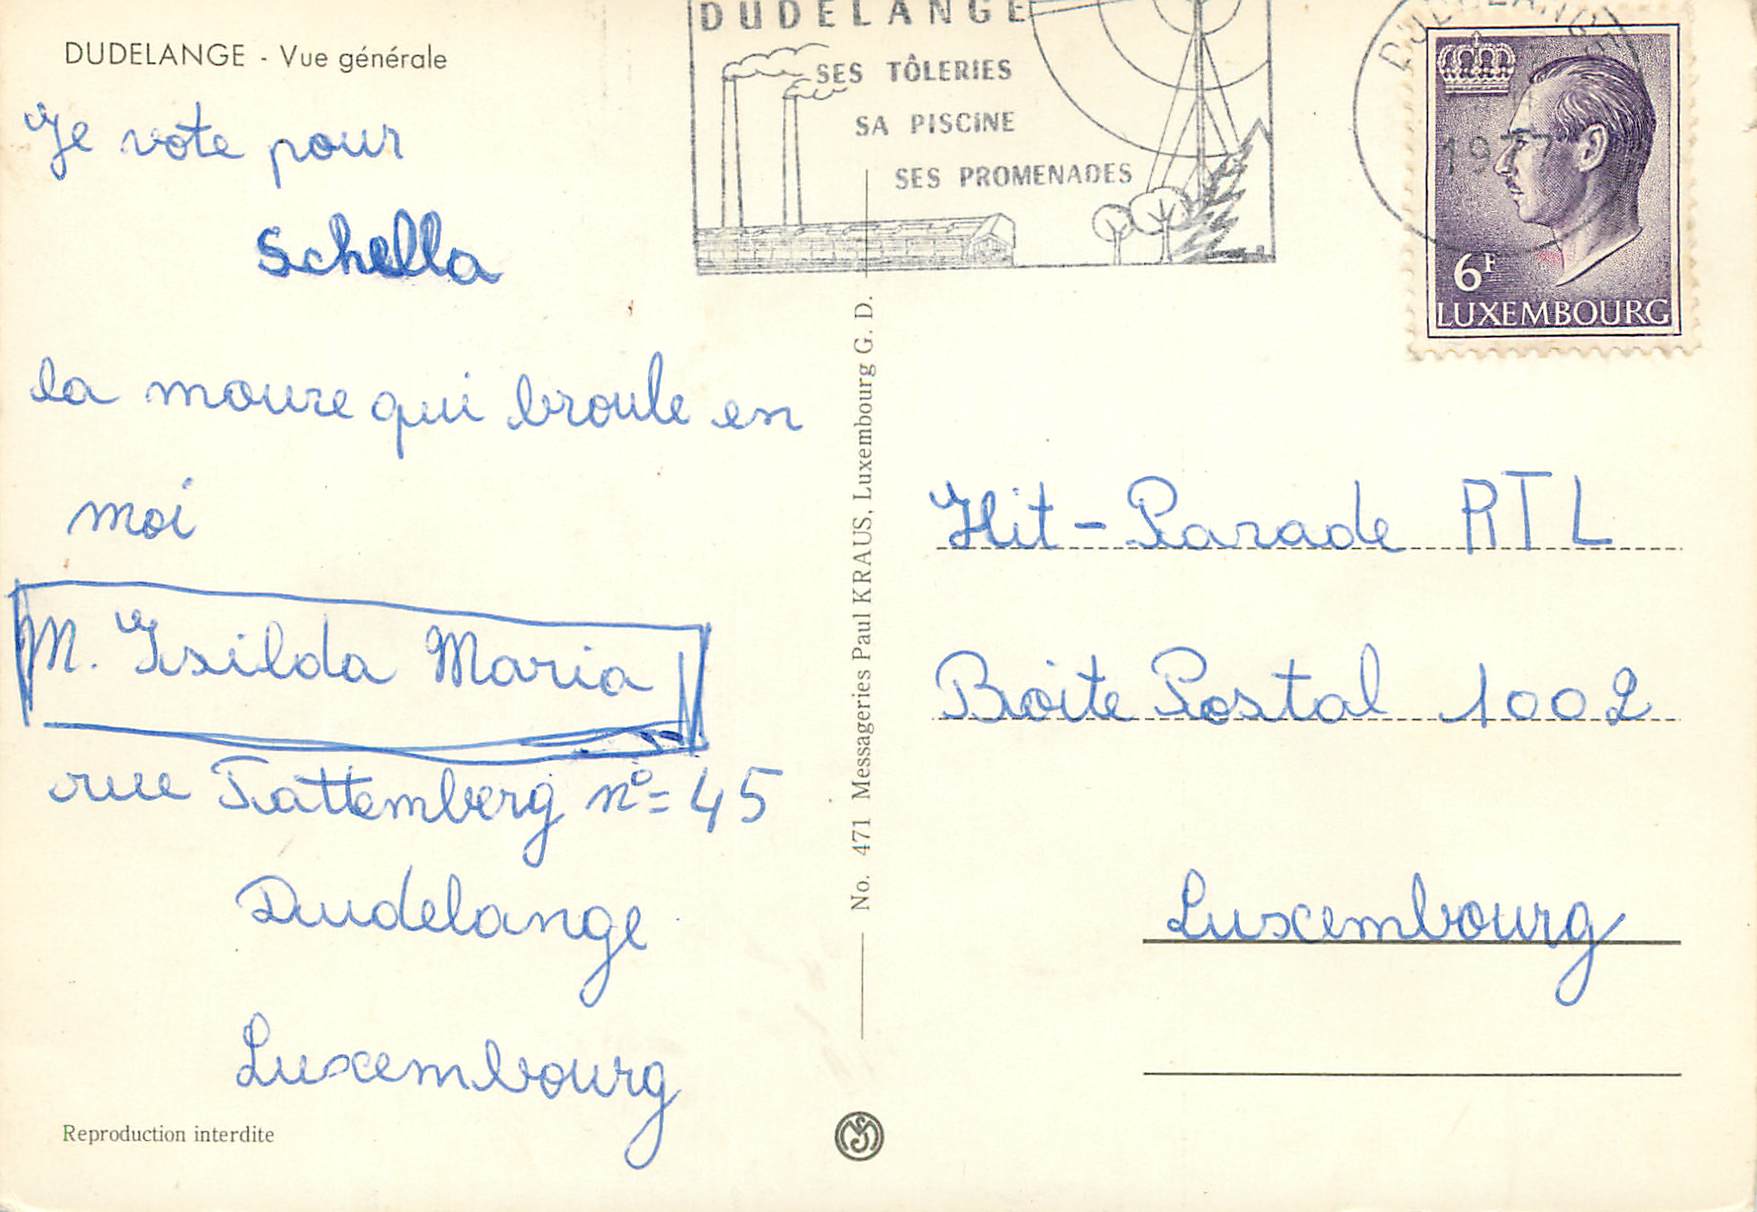 DUDELANGE - Vue générale
Je vote pour
Schella
la moure qui broule en
moi
M. Isilda Maria
rue Tattemberg nº= 45
Dudelange
Luxembourg
Reproduction interdite
No. 471 Messageries Paul KRAUS, Luxembourg G. D.
DUDELANGE
SES TÔLERIES
SA PISCINE
SES PROMENADES
DUDELANGE
1977
6F
LUXEMBOURG
Hit-Parade RTL
Boite Postal 1002
Luxembourg